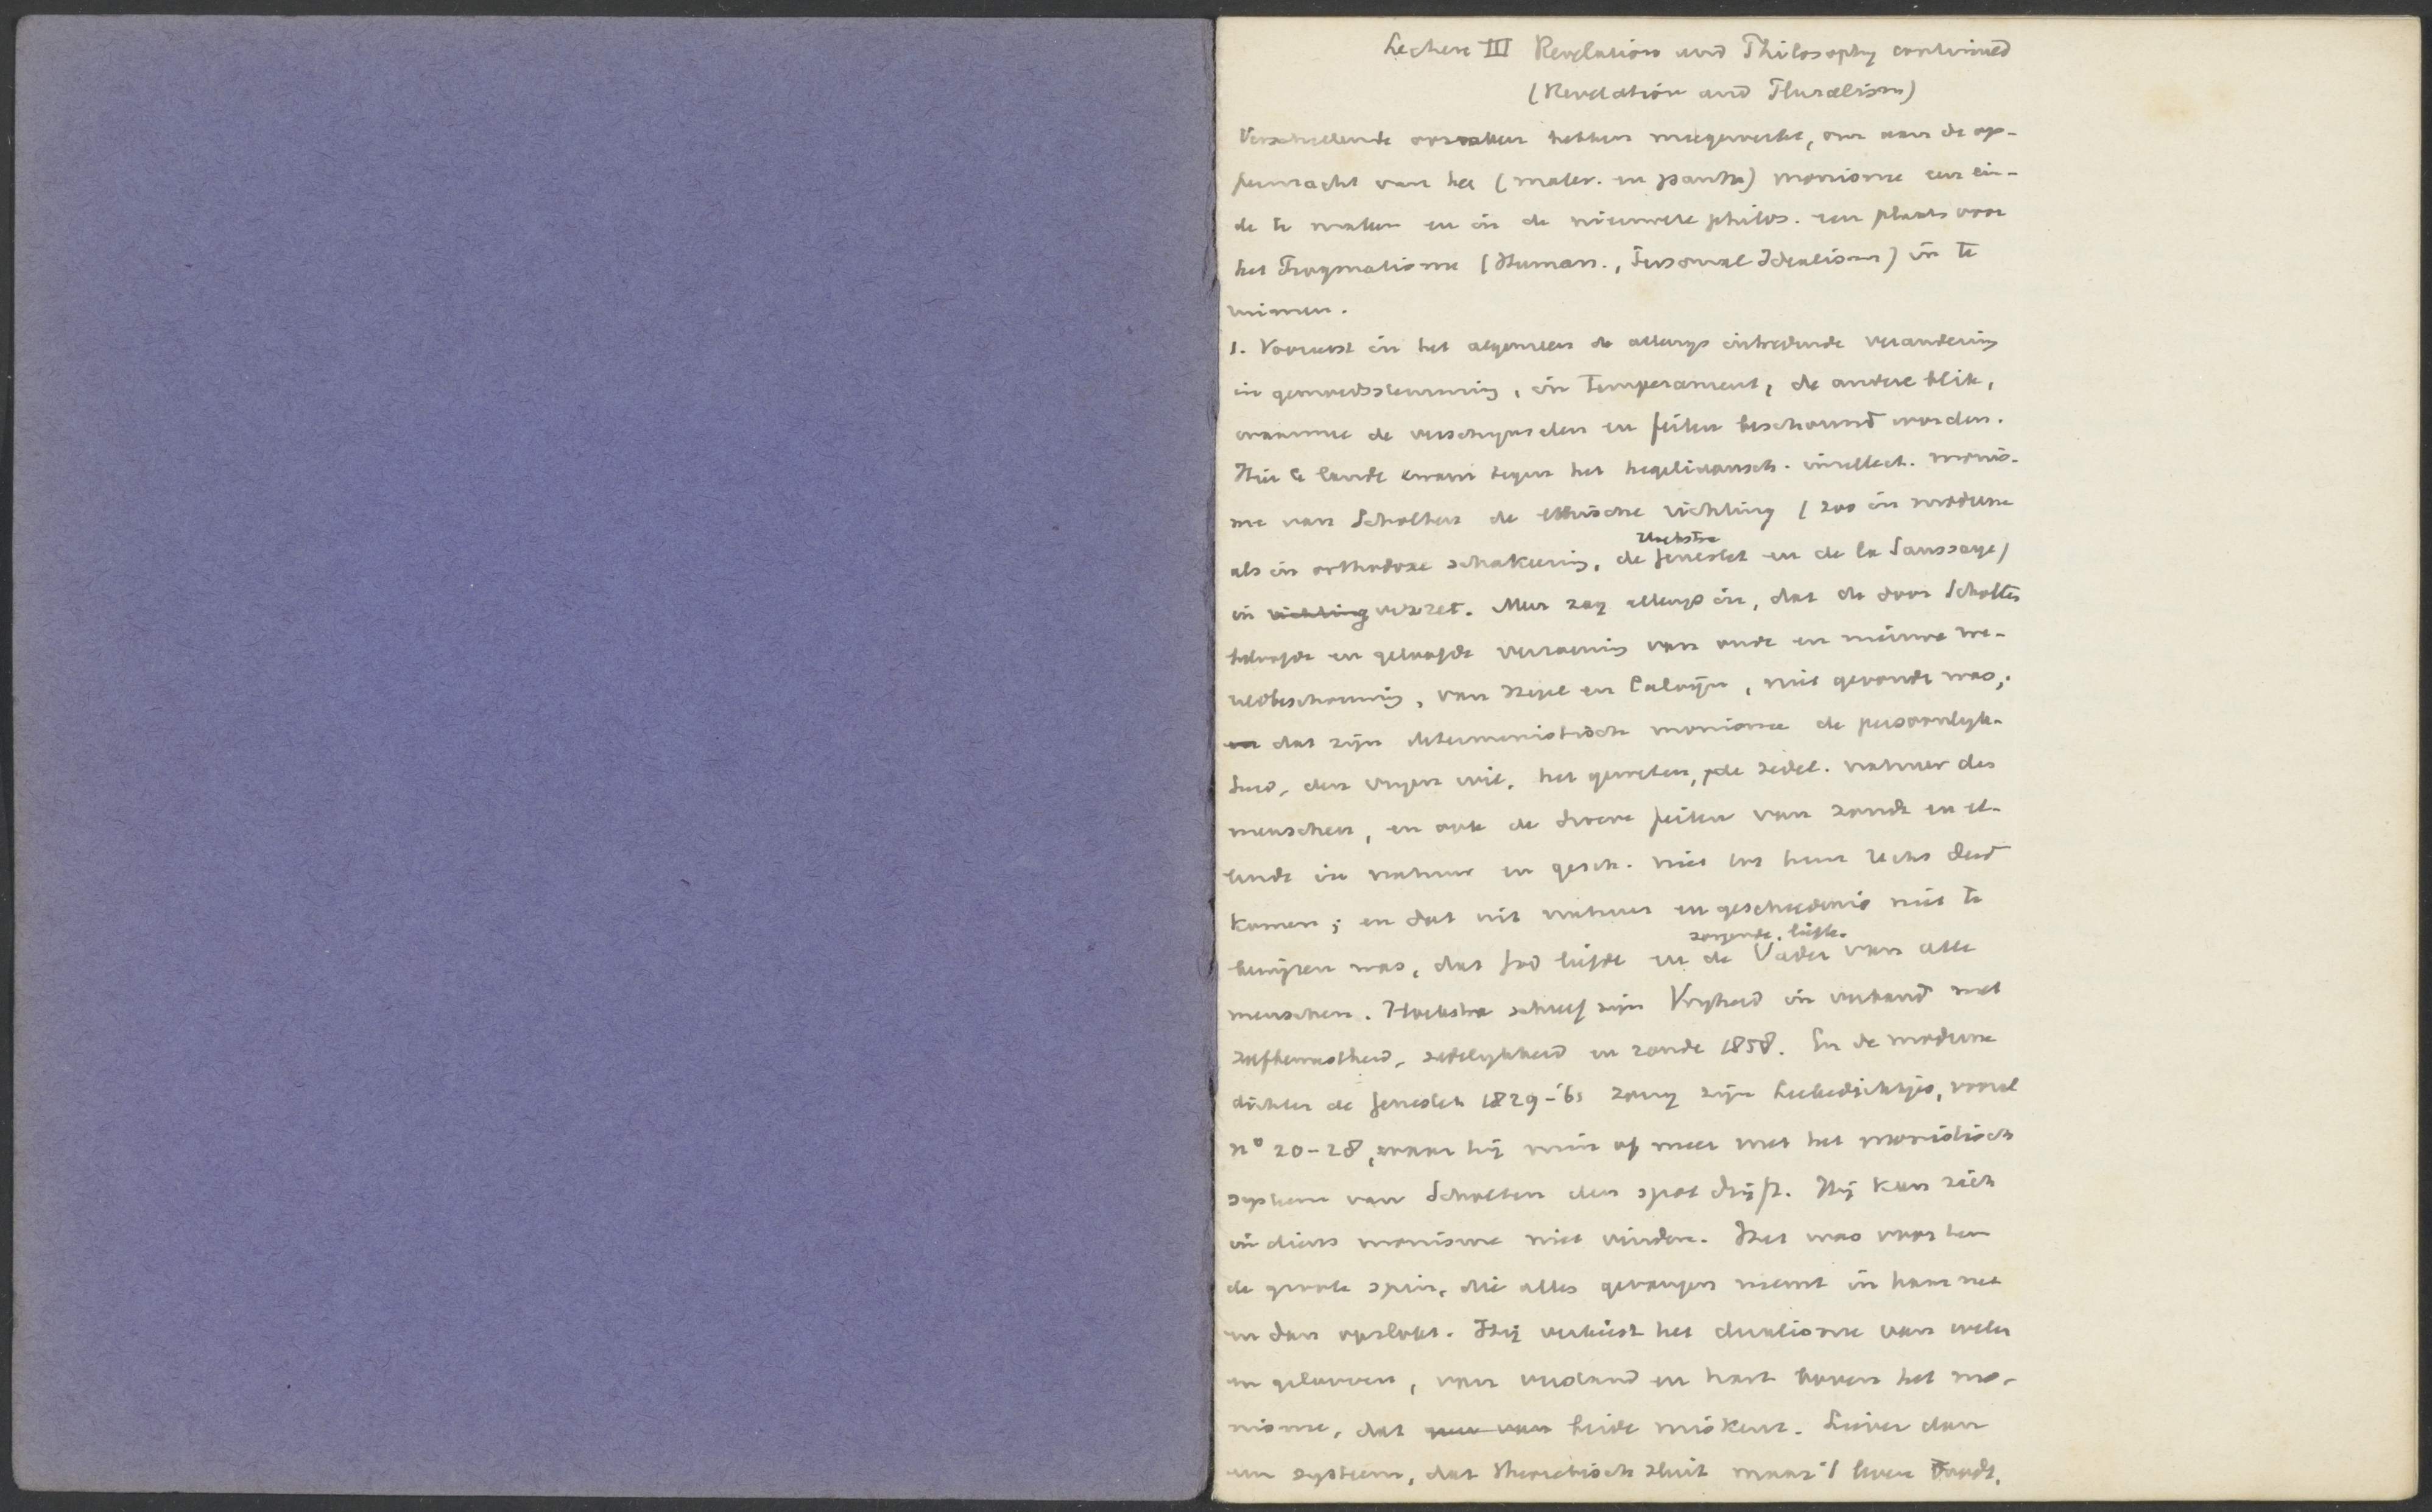 Lecture III Revelation and Philosophy continued
(Revelation and Pluralism)
Verschillende oorzaken hebben meegewerkt, om aan de op-
permacht van het (mater. en panth) monisme een ein-
de te maken en in de nieuwere philos. een plaats voor
het Pragmatisme (Human., Personal Idealism) in te
ruimen.
1. Vooreerst in het algemeen de allengs intredende verandering
in gemoedsstemming, in temperament, de andere blik,
waarmee de verschijnselen en feiten beschouwd worden.
Hier te lande kwam tegen het hegeliaansch. intellect. monis-
me van Scholten de ethische richting (zoo in moderne
Hoekstra
als in orthodoxe schakeering, de Genestet en de la Saussaye)
in richting verzet. Men zag allengs in, dat de door Scholten
beloofde en geloofde verzoening van oude en nieuwe we-
reldbeschouwing, van Hegel en Calvijn, niet gevonden was;
en dat zijn deterministisch monisme de persoonlijk-
heid, den vrijen wil, het geweten, de zedel. natuur des
menschen, en ook de droeve feiten van zonde en el-
lende in natuur en gesch. niet tot hun recht deed
komen; en dat uit natuur en geschiedenis niet te
zorgende, liefh.
bewijzen was, dat God liefde en de Vader van alle
menschen. Hoekstra schreef zijn Vrijheid in verband met
zelfbewustheid, zedelijkheid en zonde 1858. En de moderne
dichter de Genestet 1829-'61 zong zijn Leekedichtjes, vooral
nº 20-28, waar hij min of meer met het monistisch
systeem van Scholten den spot drijft. Hij kon zich
in diens monisme niet vinden. Het was voor hem
de groote spin, die alles gevangen neemt in haar net
en dan opslokt. Hij verkiest het dualisme van weten
en gelooven, van verstand en hart boven het mo-
nisme, dat een van beide miskent. Liever dan
een systeem, dat theoretisch sluit maar 't leven doodt,